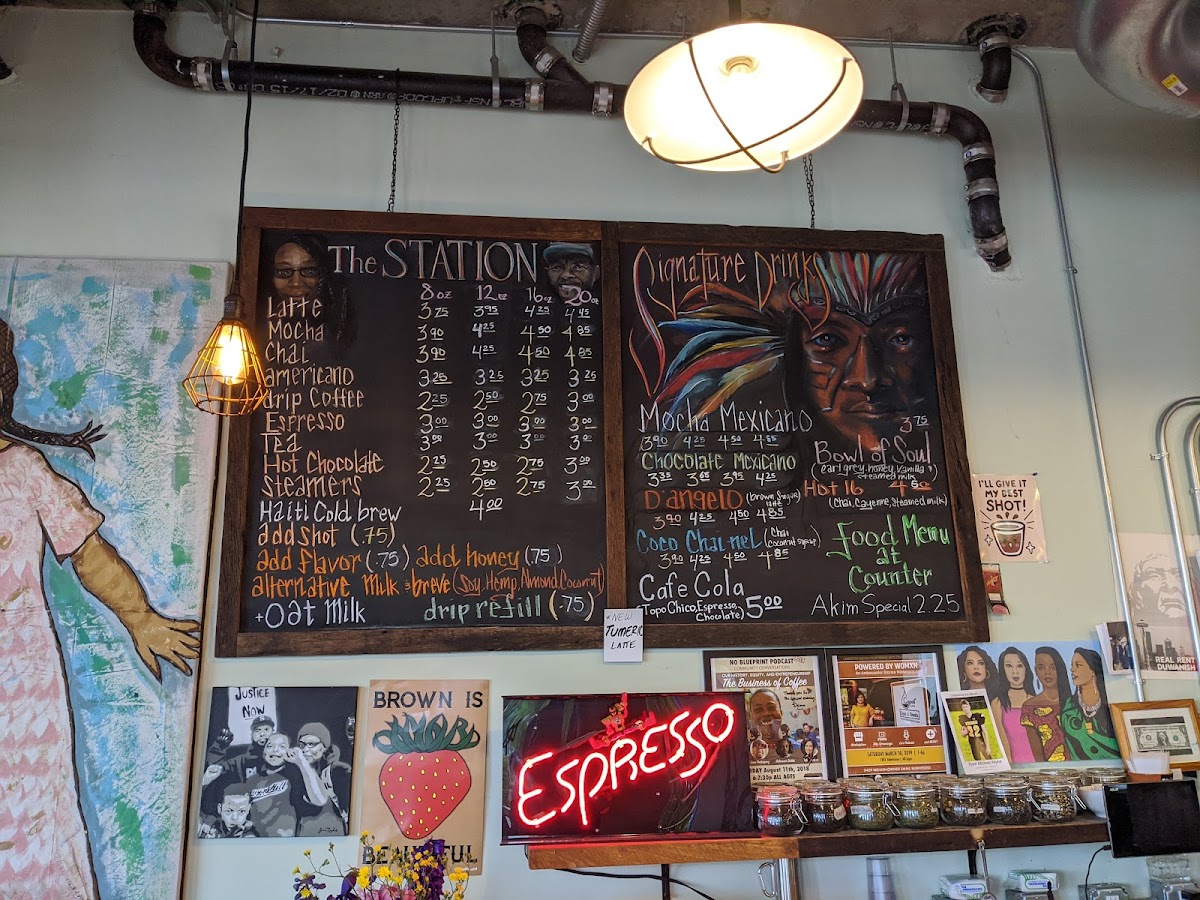 The STATION
8 oz 12 oz 16 oz 20 oz
Latte 3.75 3.95 4.25 4.45
Mocha 3.90 4.25 4.50 4.85
Chai 3.90 4.25 4.50 4.85
americano 3.25 3.25 3.25 3.25
drip Coffee 2.25 2.50 2.75 3.00
Espresso 3.00 3.00 3.00 3.00
Tea 3.00 3.00 3.00 3.00
Hot Chocolate 2.25 2.50 2.75 3.00
Steamers 2.25 2.50 2.75 3.00
Haiti Cold brew 4.00
add shot (.75)
add flavor (.75) add honey (.75)
alternative milk + breve (Soy, Hemp, Almond, Coconut)
+Oat Milk drip refill (.75)
Signature Drinks
Mocha Mexicano
3.90 4.25 4.50 4.85
Chocolate Mexicano
3.35 3.65 3.95 4.25
D'angelo (brown Sugar latte)
3.90 4.25 4.50 4.85
Coco Chai-nel (Chai Coconut syrup)
3.90 4.25 4.50 4.85
Cafe Cola
(Topo Chico, Espresso, Chocolate) 5.00
3.75
Bowl of Soul
(earl grey, honey, vanilla + steamed milk)
Hot 16 4.50
(Chai, Cayenne, Steamed milk)
Food Menu
at
Counter
Akim Special 2.25
NEW
TUMERIC
LATTE
I'LL GIVE IT
MY BEST
SHOT!
REAL RENT
DUWAMISH
JUSTICE
NOW
BROWN IS
BEAUTIFUL
ESPRESSO
NO BLUEPRINT PODCAST
COMMUNITY CONVERSATIONS
OUR HISTORY, EQUITY, AND ENTREPRENEURSHIP
The Business of Coffee
August 11th, 2018
ALL AGES
POWERED BY WOMXN